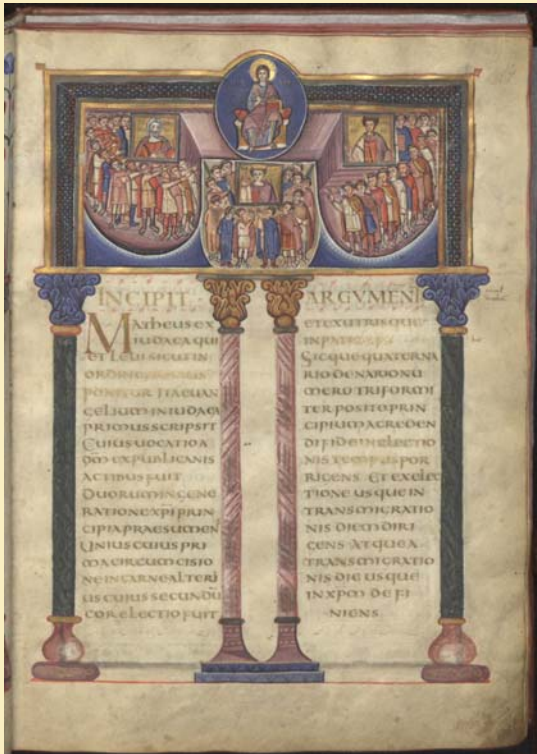 INCIPIT
Matheus ex
iudaea qui
et leui sicut in
ordine primus
ponitur ita euan
gelium in iudaea
primus scripsit
Cuius uocatio a
dm̄ ex publicanis
actibus fuit
duorum in gene
ratione xpi prin
cipia praesumen
Unius cuius pri
ma circumcisio
ne in carne alteri
us cuius secundū
cor electio fuit
ARGVMENT
et ex utrisque
in patrib·
Sicque quaterna
rio denario nu
mero triformi
ter posito prin
cipium a creden
di fide in electio
nis tempus por
rigens. Et ex elec
tione usque in
transmigratio
nis diem diri
gens. Atque a
transmigratio
nis die usque
in xpm̄ defi
niens